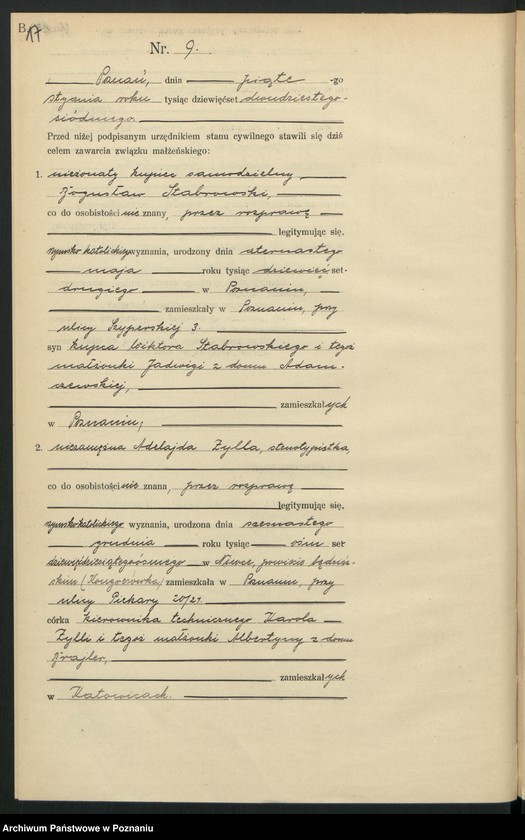 B.
17
Nr. 9.
Poznań, dnia piąte -go
stycznia roku tysiąc dziewięćset dwudziestego-
siódmego
Przed niżej podpisanym urzędnikiem stanu cywilnego stawili się dziś
celem zawarcia związku małżeńskiego:
1. nieżonaty kupiec samodzielny
Bogusław Stabrowski,
co do osobistości nie znany, przez rozprawę
legitymując się,
rzymsko katolickiego wyznania, urodzony dnia czternastego
maja roku tysiąc dziewięć set-
drugiego w Poznaniu,
zamieszkały w Poznaniu, przy
ulicy Szyperskiej 3.
syn kupca Wiktora Stabrowskiego i tegoż
małżonki Jadwigi z domu Adam-
czewskiej,
zamieszkałych
w Poznaniu;
2. niezamężna Adelajda Zylla, stenotypistka,
co do osobistości nie znana, przez rozprawę
legitymując się,
rzymskokatolickiego wyznania, urodzona dnia szesnastego
grudnia roku tysiąc ośm set
dziewięćdziesiątegoósmego w Niwce, powiecie będziń-
skim (Kongresówka) zamieszkała w Poznaniu, przy
ulicy Piekary 20/21.
córka kierownika technicznego Karola
Zylli i tegoż małżonki Albertyny z domu
zamieszkałych
w Katowicach.
Archiwum Państwowe w Poznaniu